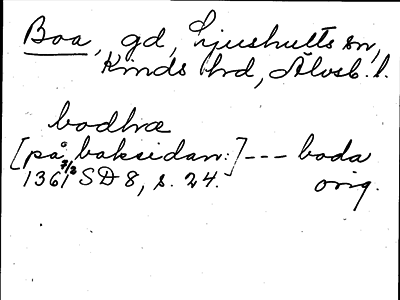 Boa, gd, Ljushults sn,
Kinds hd, Älvsb. l.
bodhæ
[på baksidan:] --- boda
1361 7/3 SD 8, s. 24. orig.